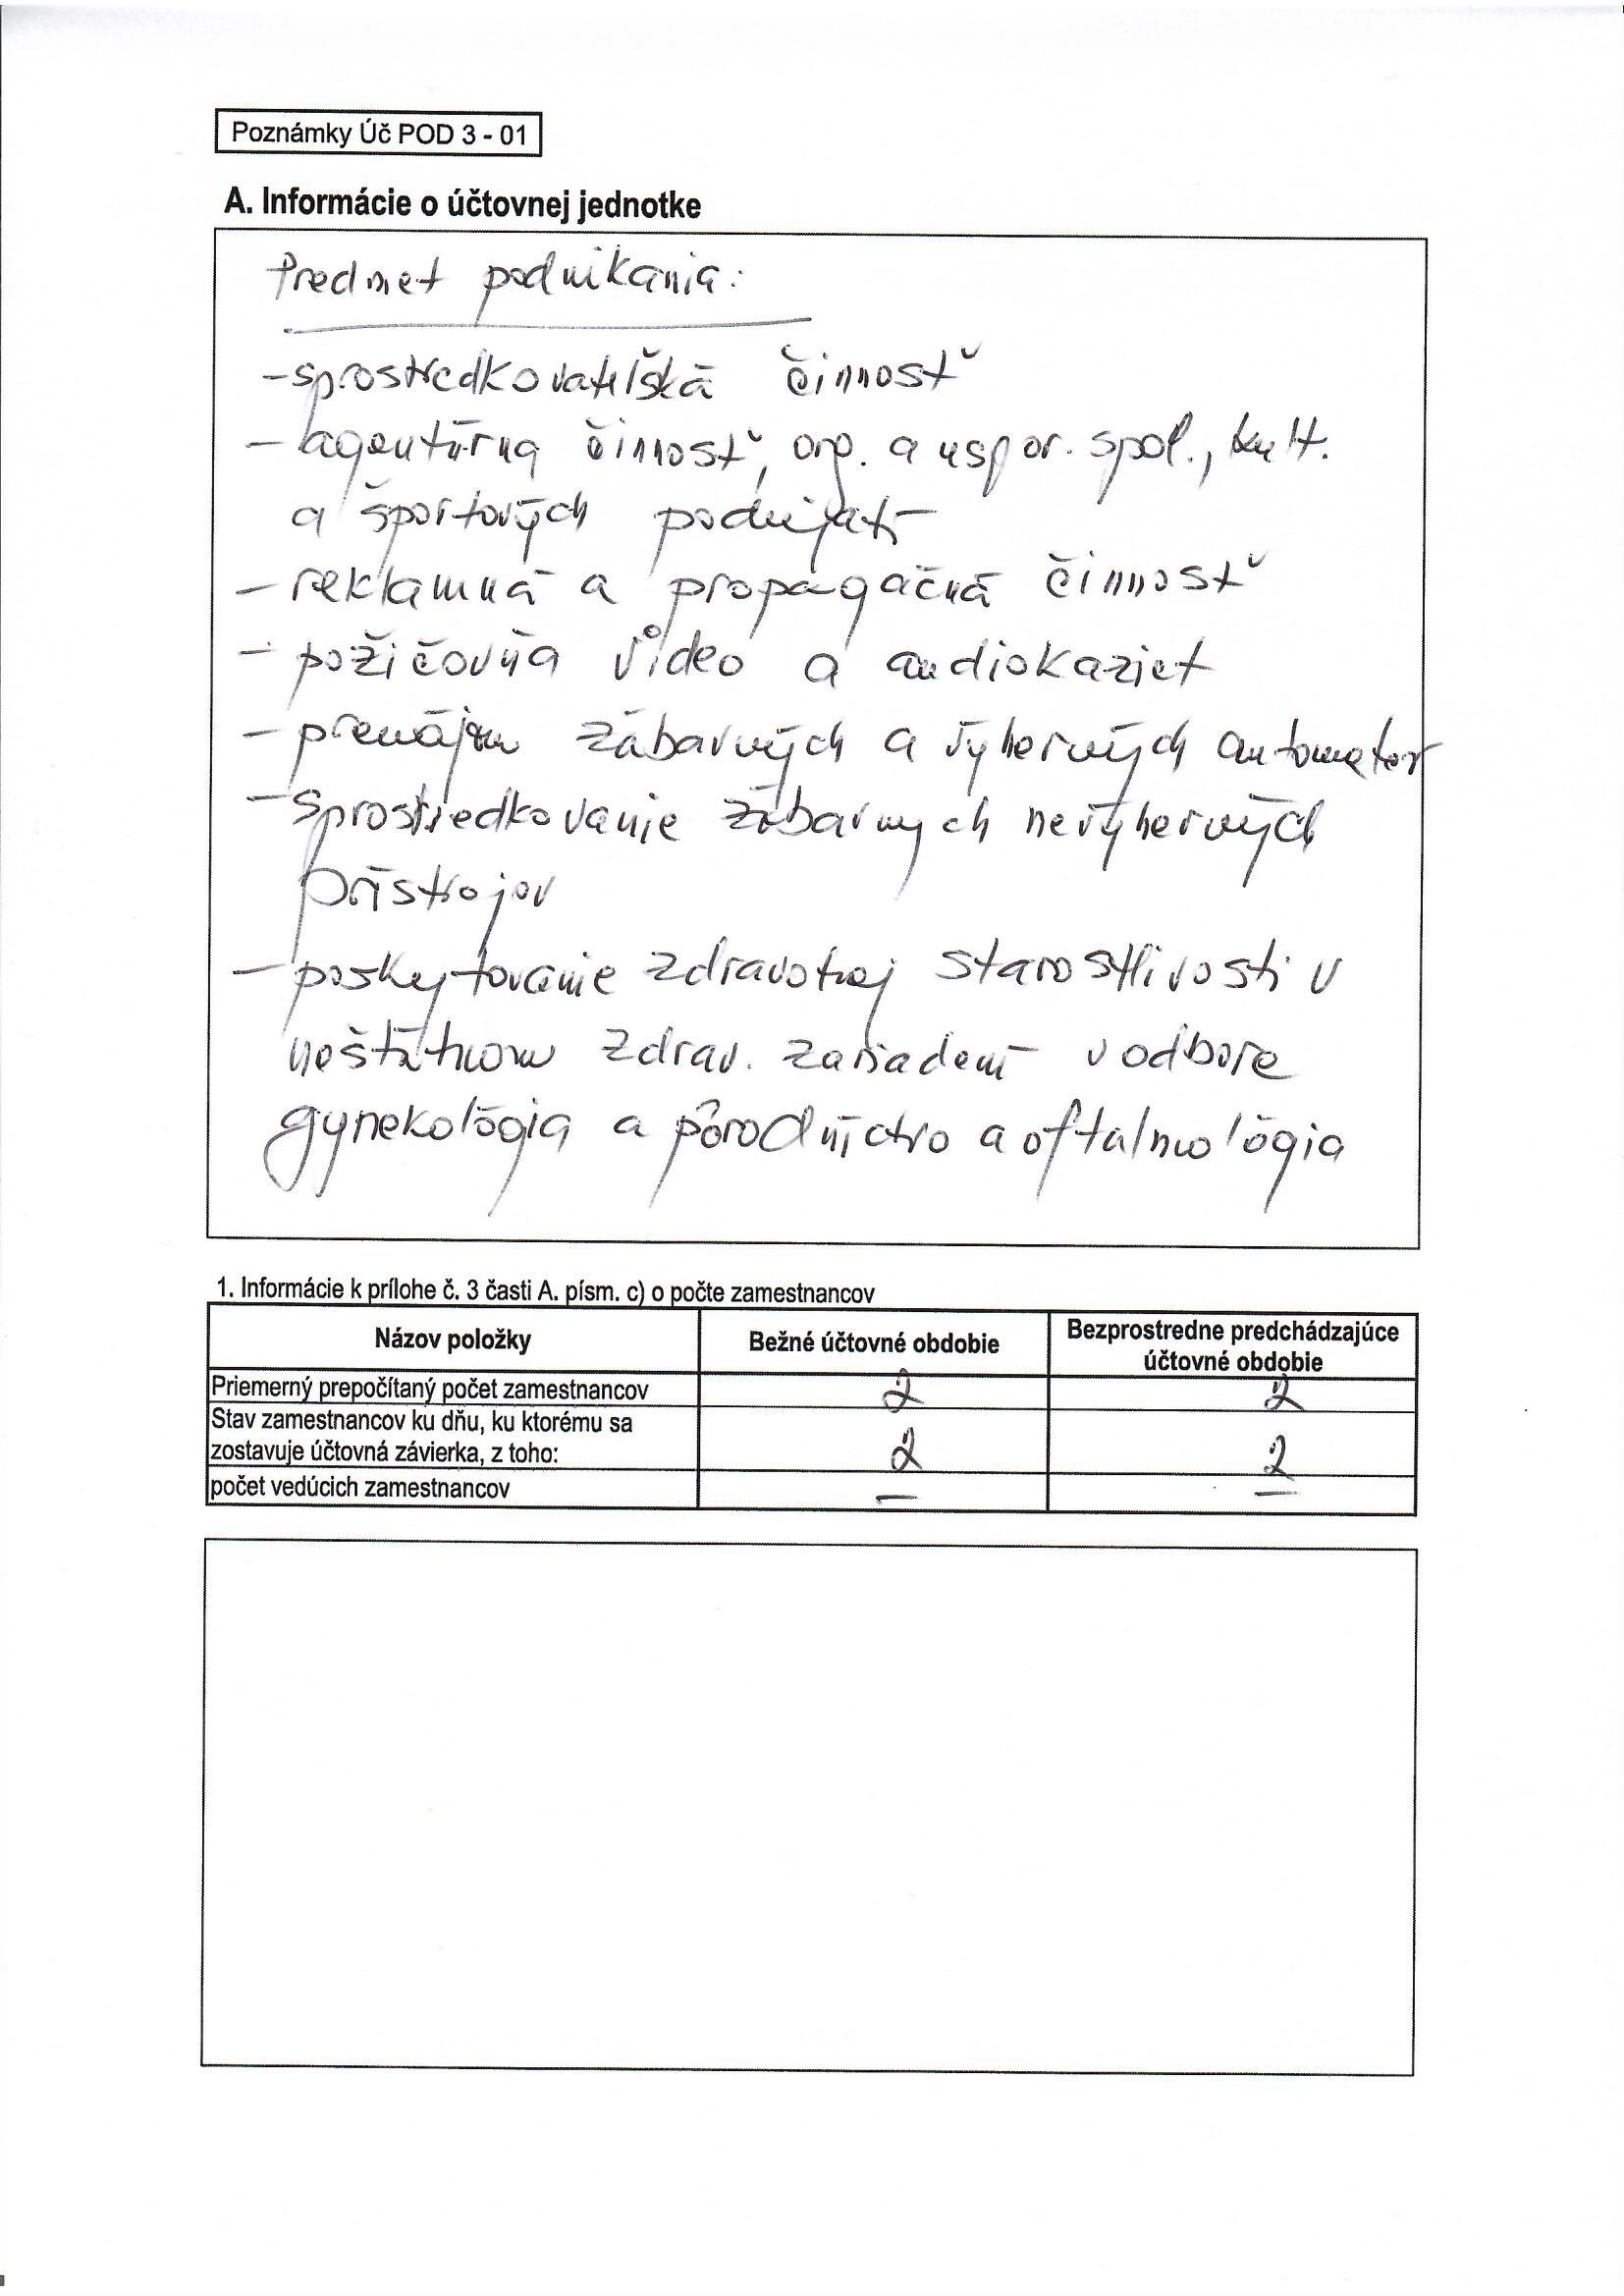 Poznámky Úč POD 3 - 01
A. Informácie o účtovnej jednotke
Predmet podnikania:
- sprostredkovateľská činnosť
- agentúrna činnosť, org. a uspor. spol., kult.
a športových podujatí
- reklamná a propagačná činnosť
- požičovňa video a audiokaziet
- prenájom zábavných a výherných automatov
- sprostredkovanie zábavných nevýherných
prístrojov
- poskytovanie zdravotnej starostlivosti v
neštátnom zdrav. zariadení v odbore
gynekológia a pôrodníctvo a oftalmológia
1. Informácie k prílohe č. 3 časti A. písm. c) o počte zamestnancov
Názov položky Bežné účtovné obdobie Bezprostredne predchádzajúce
účtovné obdobie
Priemerný prepočítaný počet zamestnancov 2 2
Stav zamestnancov ku dňu, ku ktorému sa
zostavuje účtovná závierka, z toho: 2 2
počet vedúcich zamestnancov — —